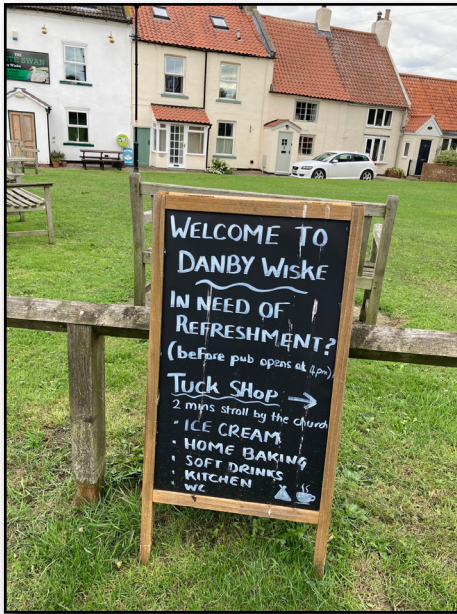 THE
SWAN
WELCOME TO
DANBY WISKE
IN NEED OF
REFRESHMENT?
(before pub opens at 4pm)
TUCK SHOP →
2 mins stroll by the church
• ICE CREAM
• HOME BAKING
• SOFT DRINKS
• KITCHEN
• WC